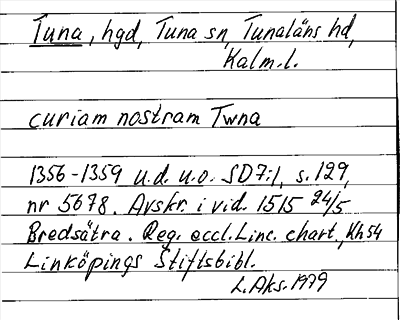 Tuna, hgd, Tuna sn, Tunaläns hd,
Kalm.l.
curiam nostram Twna
1356-1359 u.d. u.o. SD7:1, s. 129,
nr 5678. Avskr. i vid. 1515 24/5
Bredsätra. Reg. eccl. Linc. chart., Kh 54
Linköpings Stiftsbibl.
L.Aks. 1979